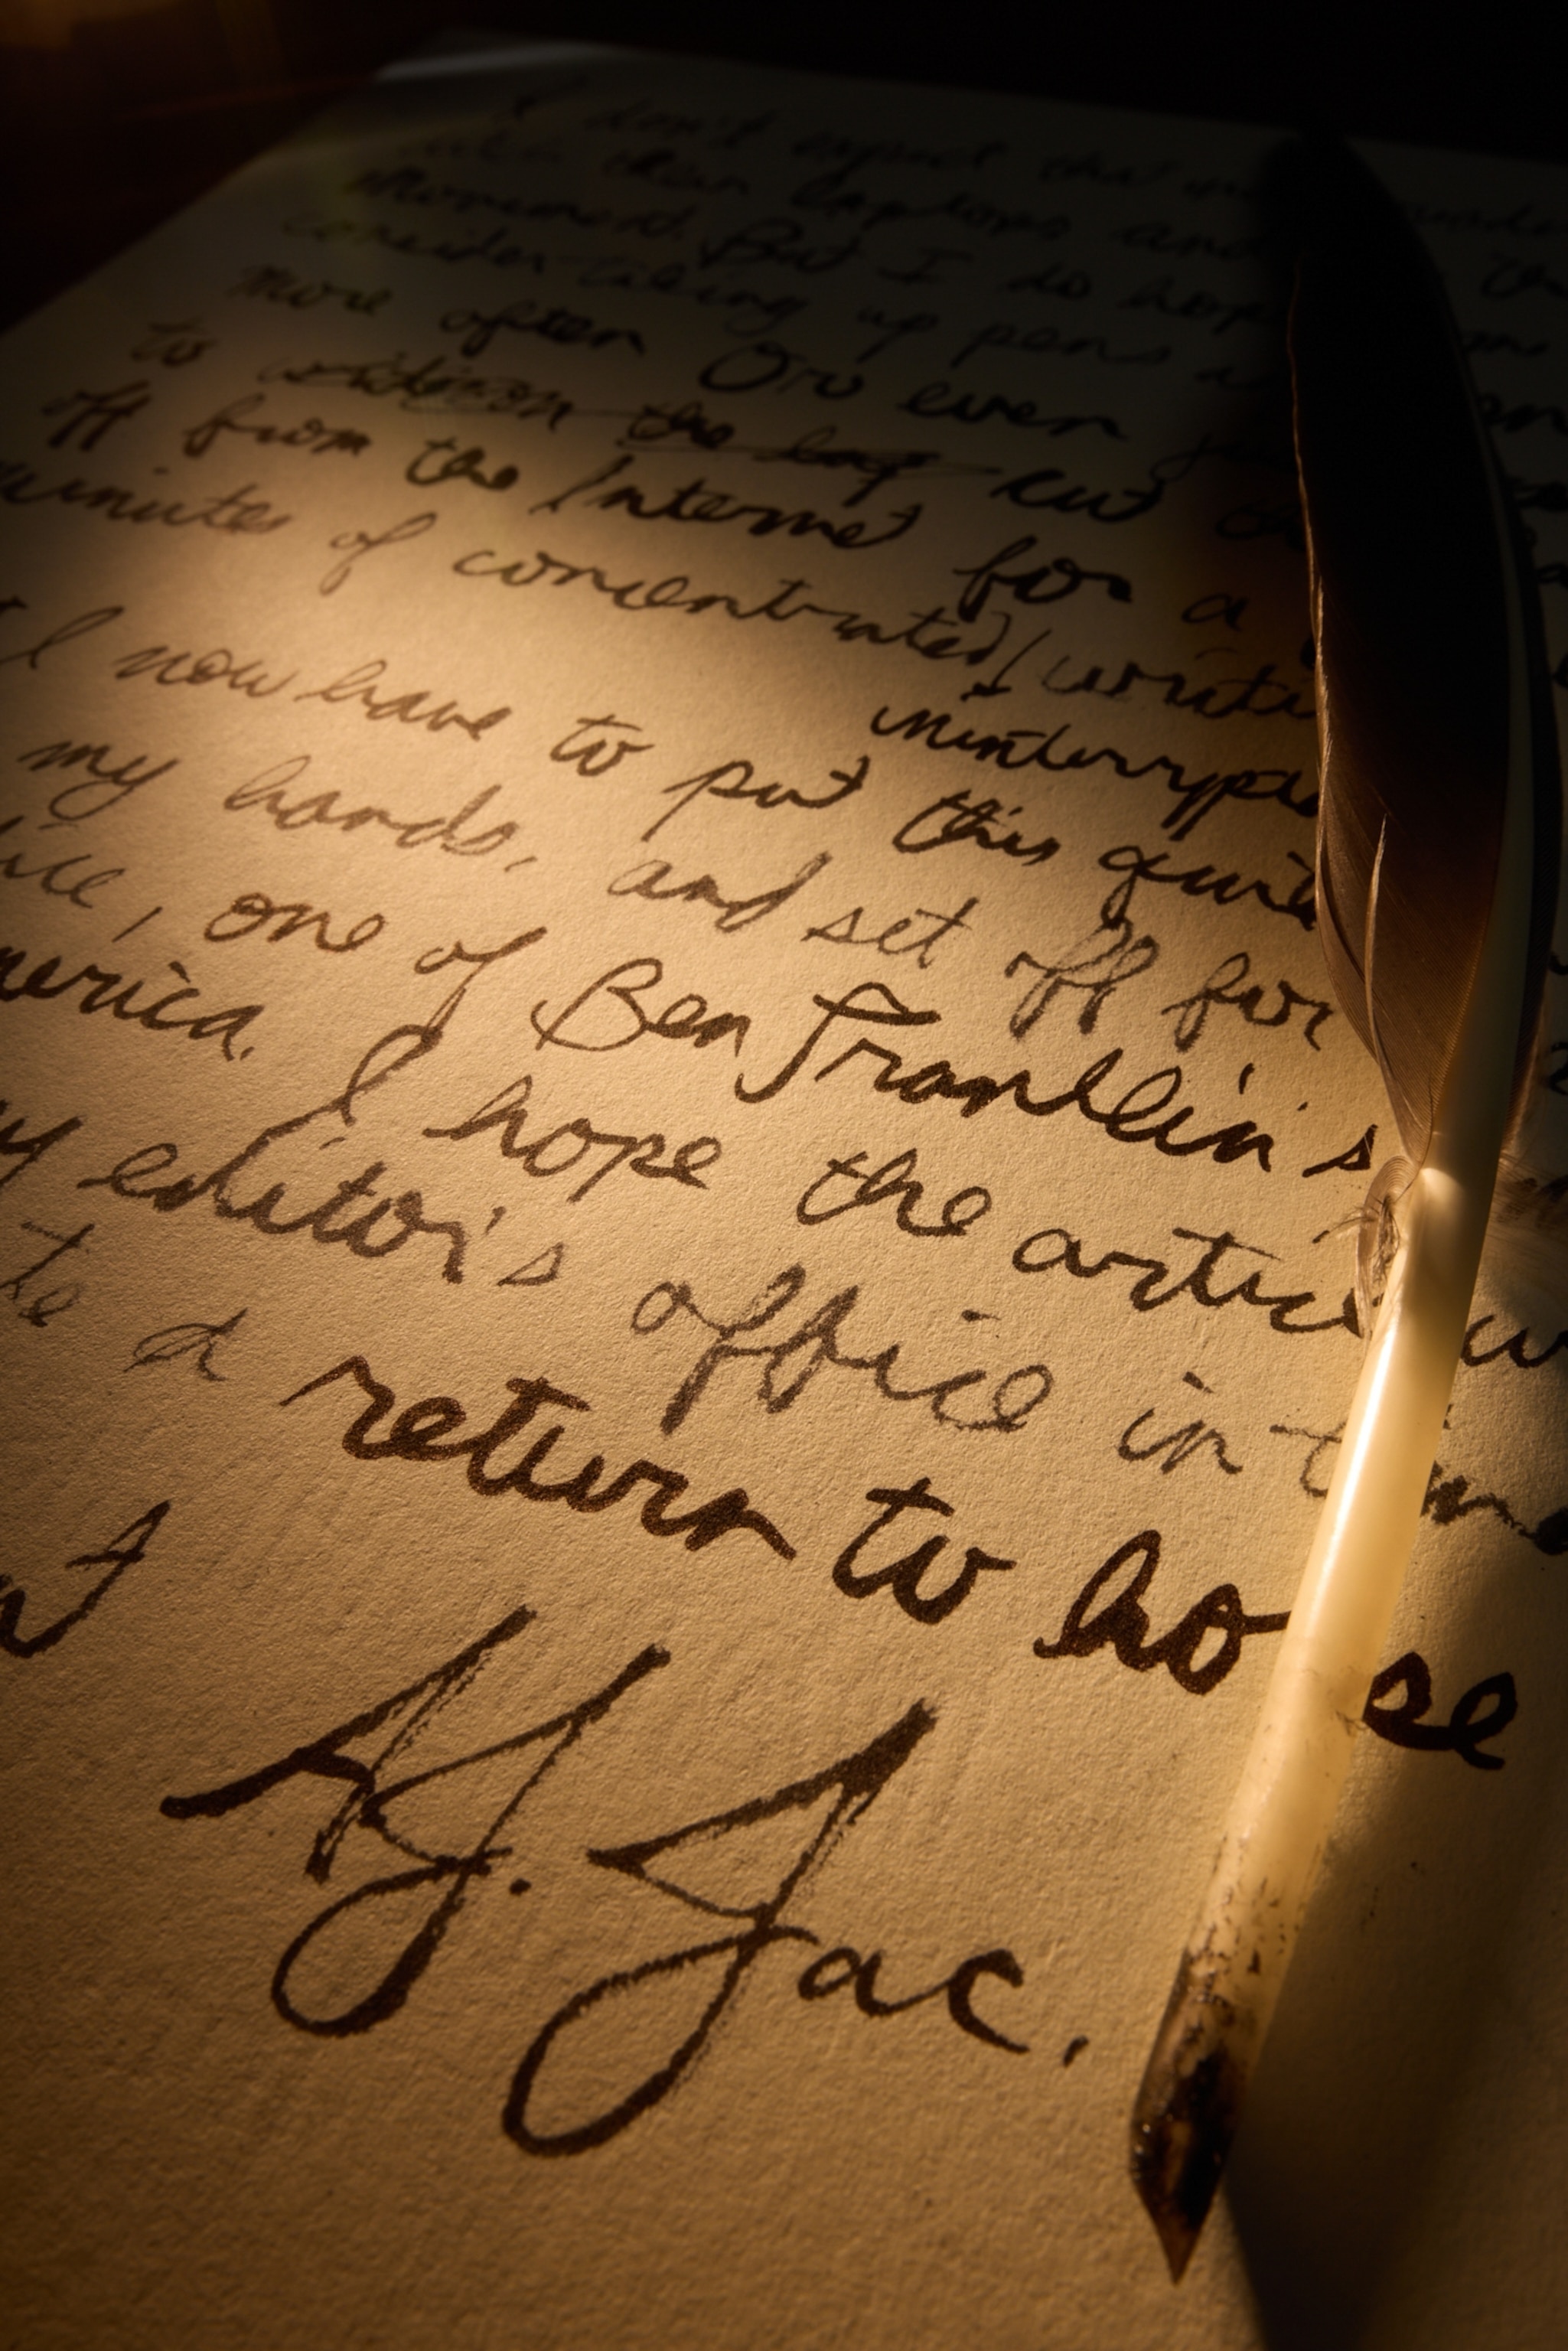 I don't expect that
than laptops and
Movement. But I do hope
consider taking up pens
more often Or even
to cut
off from the Internet for a
minutes of concentrated, writi
uninterrupte
I now have to put this quill
my hands, and set off for
ice, one of Ben Franklin's
merica. I hope the artic
y editor's office in time
te a return to ho se
A.J. Jac.